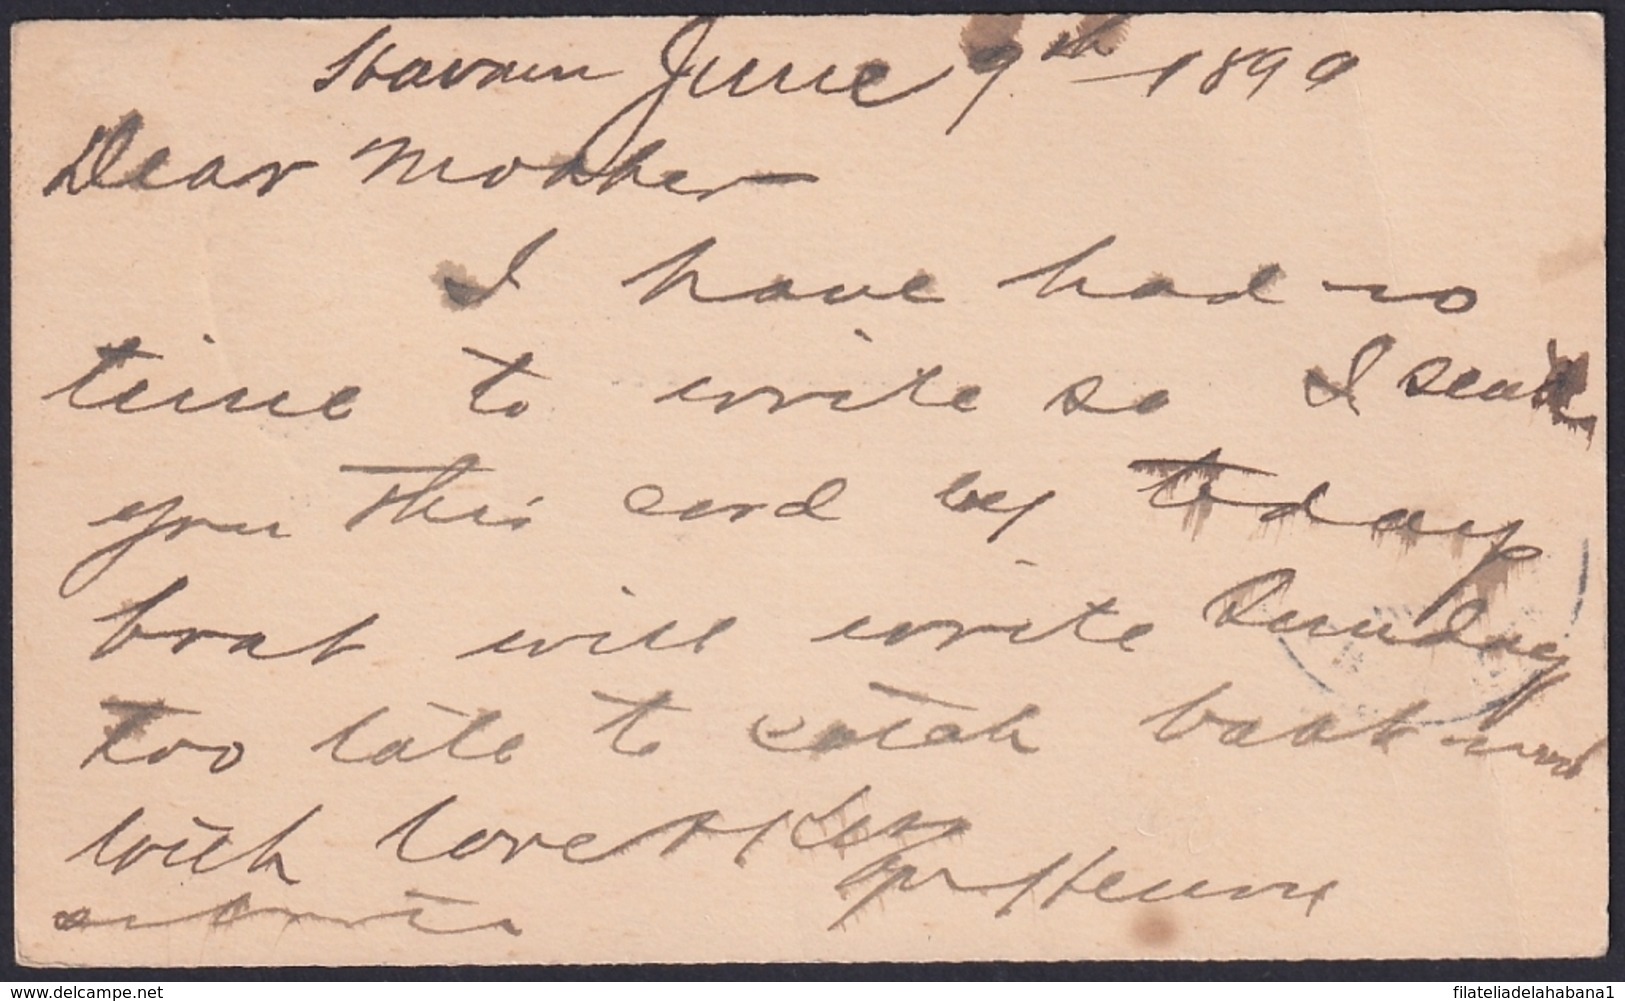 Havana June 9th 1899
Dear Mother
I have had no
time to write so I send
you this card by today
boat will write Sunday
too late to catch boat
with love
yr Henry
www.delcampe.net
filateliadelahabana1